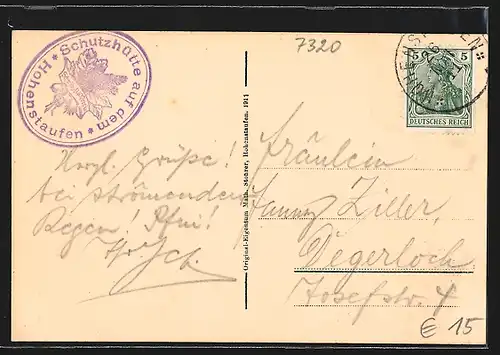 Schutzhütte auf dem
Hohenstaufen
7320
5 5
DEUTSCHES REICH
Herzl. Grüße!
bei strömendem
Regen! Pfui!
Original-Eigentum Math. Stohrer, Hohenstaufen. 1911
Fräulein
Fanny Ziller,
Degerloch
Josefstr. 4
€ 15